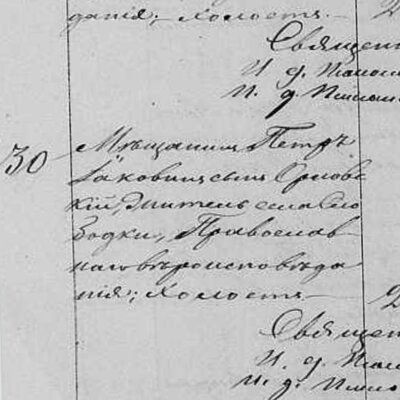 данія; Холостъ.
Священ
И. д. Псалом
И. д. Псалом
30
Мѣщанинъ Петръ
Яковлевъ сынъ Орлов
кій, житель села
Водки, Православ
наго вѣроисповѣда
нія; Холостъ
2
Священ
И. д. Псалом
И. д. Псалом